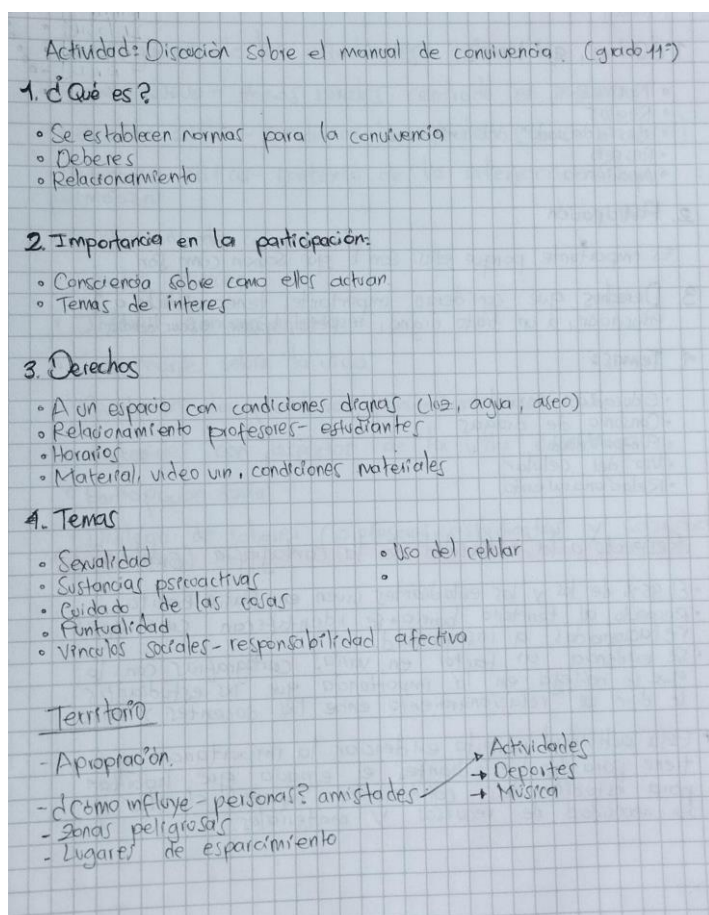 Actividad: Discución sobre el manual de convivencia. (grado 11°)
1. ¿Qué es?
• Se establecen normas para la convivencia
• Deberes
• Relacionamiento
2. Importancia en la participación:
• Consciencia sobre como ellos actuan
• Temas de interes
3. Derechos
• A un espacio con condiciones dignas (luz, agua, aseo)
• Relacionamiento profesores - estudiantes
• Horarios
• Material, video vin, condiciones materiales
4. Temas
• Sexualidad
• Sustancias psicoactivas
• Cuidado de las cosas
• Puntualidad
• Vinculos sociales - responsabilidad afectiva
• Uso del celular
•
Territorio
- Apropiación.
- ¿Cómo influye - personas? amistades
→ Actividades
→ Deportes
→ Música
- Zonas peligrosas
- Lugares de esparcimiento